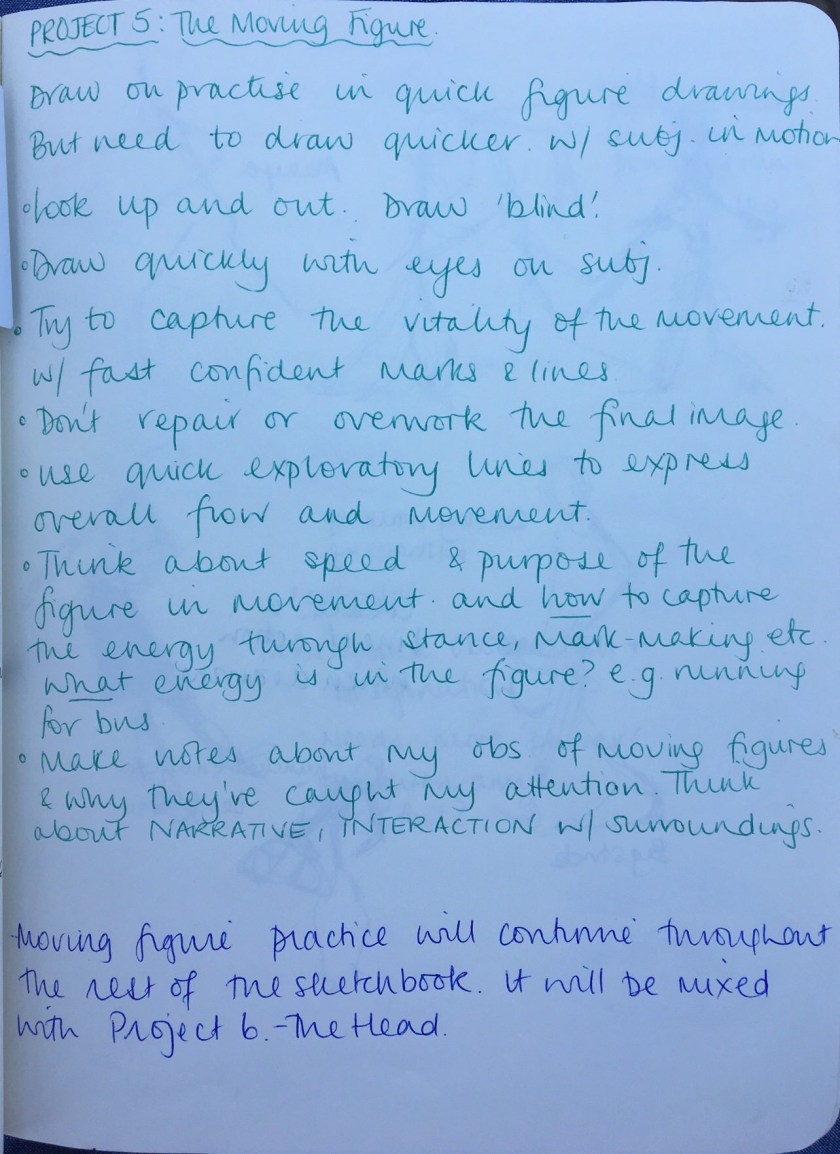 PROJECT 5: The Moving Figure.
Draw on practise in quick figure drawings.
But need to draw quicker. w/ subj. in motion
• Look up and out. Draw 'blind'.
• Draw quickly with eyes on subj.
• Try to capture the vitality of the movement.
w/ fast confident marks & lines
• Don't repair or overwork the final image.
• Use quick exploratory lines to express
overall flow and movement.
• Think about speed & purpose of the
figure in movement. and how to capture
the energy through stance, mark-making etc.
What energy is in the figure? e.g. running
for bus.
• Make notes about my obs. of moving figures
& why they've caught my attention. Think
about NARRATIVE, INTERACTION w/ surroundings.
Moving figure practice will continue throughout
the rest of the sketchbook. It will be mixed
with Project 6. - The Head.